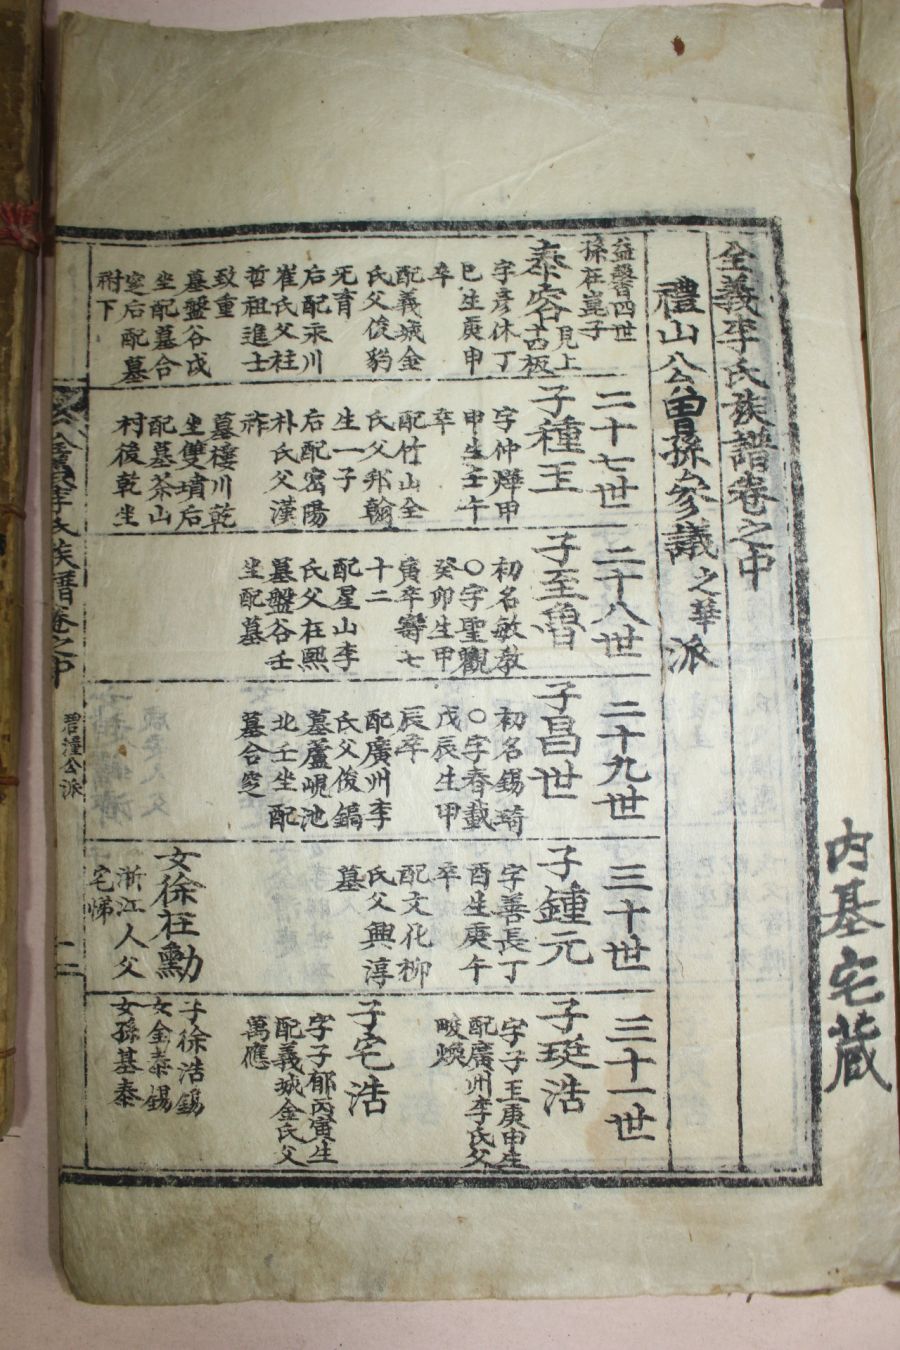 全義李氏族譜卷之中
禮山公曾孫參議之華派
益馨四世
孫在崑子
泰容見上古板
字彦休丁
巳生庚申
卒
配義城金
氏父俊豹
无育
后配永川
崔氏父柱
哲祖進士
致重
墓盤谷戌
坐配墓合
窆后配墓
祔下
二十七世
子種玉
字仲燁甲
申生壬午
卒
配竹山全
氏父邦翰
生一子
后配密陽
朴氏父漢
祚
墓樓川乾
坐雙墳后
配墓茶山
村後乾坐
二十八世
子至魯
初名敏敎
○字聖觀
癸卯生甲
寅卒壽七
十二
配星山李
氏父在熙
墓盤谷壬
坐配墓
二十九世
子昌世
初名錫琦
○字春載
戊辰生甲
辰卒
配廣州李
氏父俊鎬
墓蘆峴池
北壬坐配
墓合窆
三十世
子鍾元
字善長丁
酉生庚午
卒
配文化柳
氏父興淳
墓
女徐在勳
浙江人父
宅悌
三十一世
子珽浩
字子玉庚申生
配廣州李氏父
畯煥
子宅浩
字子郁丙寅生
配義城金氏父
萬應
子徐浩錫
女金泰錫
女孫基泰
全義李氏族譜卷之中
碧潼公派
二
內基宅藏